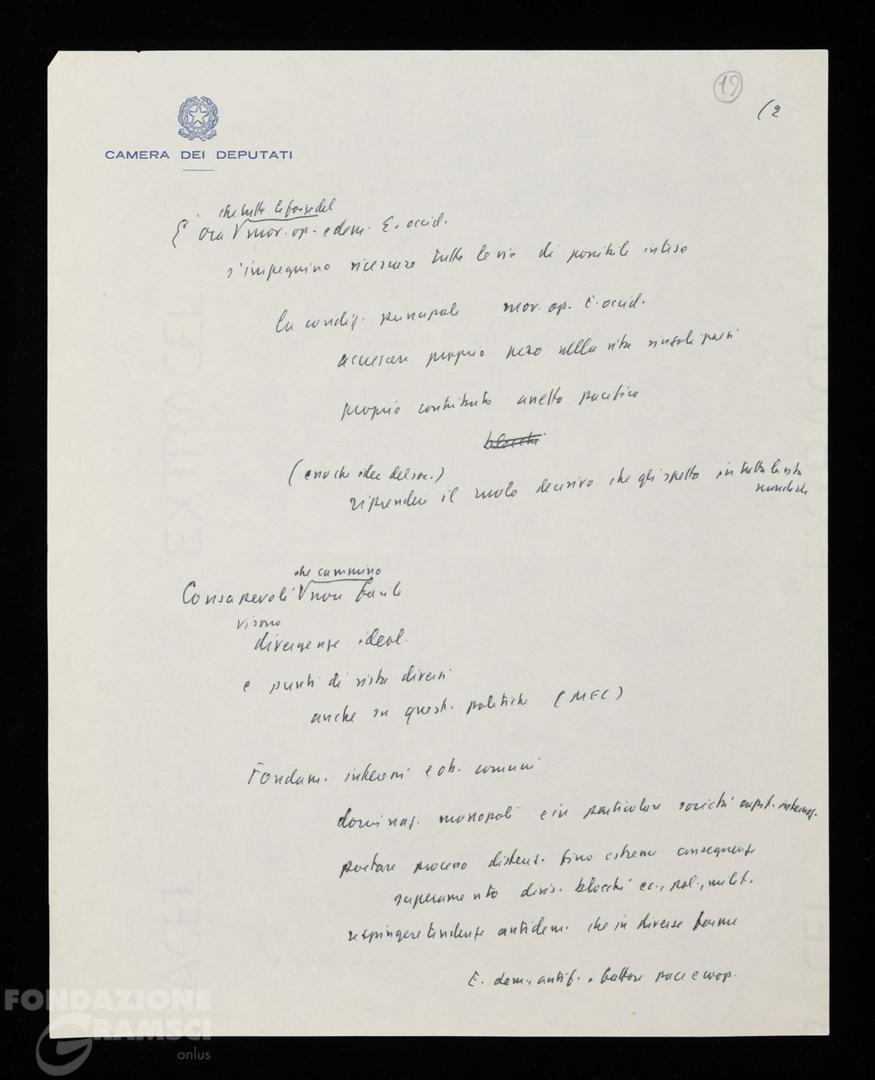 19
(2
CAMERA DEI DEPUTATI
che tutte le forze del
E' ora mov. op. e dem. E. occid.
s'impegnino ricercare tutte le vie di possibile intese
la condiz. principale mov. op. E. occid.
accrescere proprio peso nella vita singoli paesi
proprio contributo assetto pacifico
blocchi
(e anche idee del soc.)
riprendere il ruolo decisivo che gli spetta in tutta la vita
mondiale
che cammino
Consapevoli non facile
vi sono
divergenze ideol.
e punti di vista diversi
anche su quest. politiche (MEC)
Fondam. interessi e ob. comuni
dominaz. monopoli e in particolare società capit. internaz.
portare processo distens. fino estreme conseguenze
superamento divis. blocchi ec., pol., milit.
respingere tendenze antidem. che in diverse forme
E. dem., antif., fattore pace e coop.
FONDAZIONE
GRAMSCI
onlus